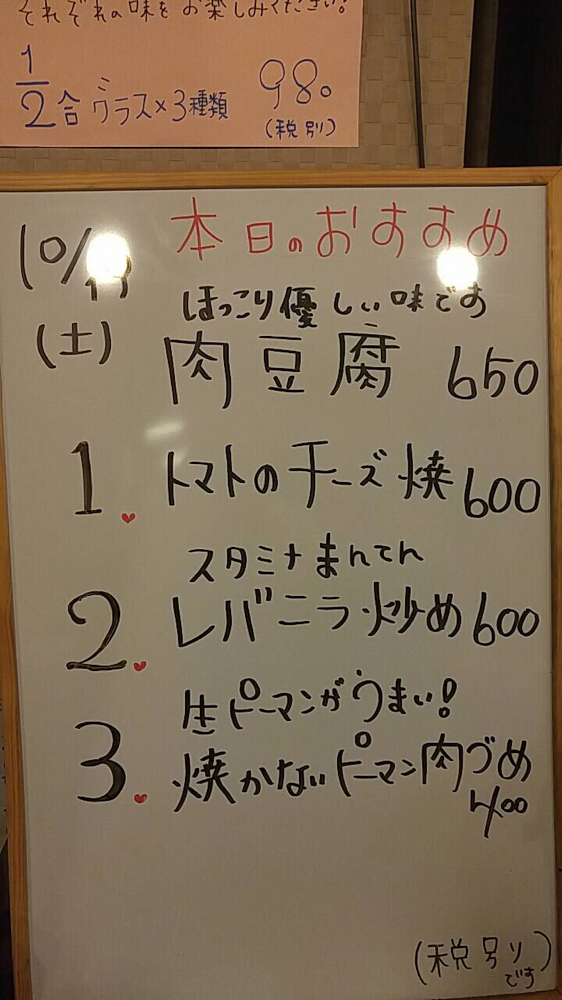 それぞれの味をお楽しみください!
1/2合グラス×3種類 980
(税別)
本日のおすすめ
10/
(土)
ほっこり優しい味です
肉豆腐 650
1. トマトのチーズ焼 600
スタミナまんてん
2. レバニラ炒め 600
生ピーマンがうまい!
3. 焼かないピーマン肉づめ
400
(税別りです)